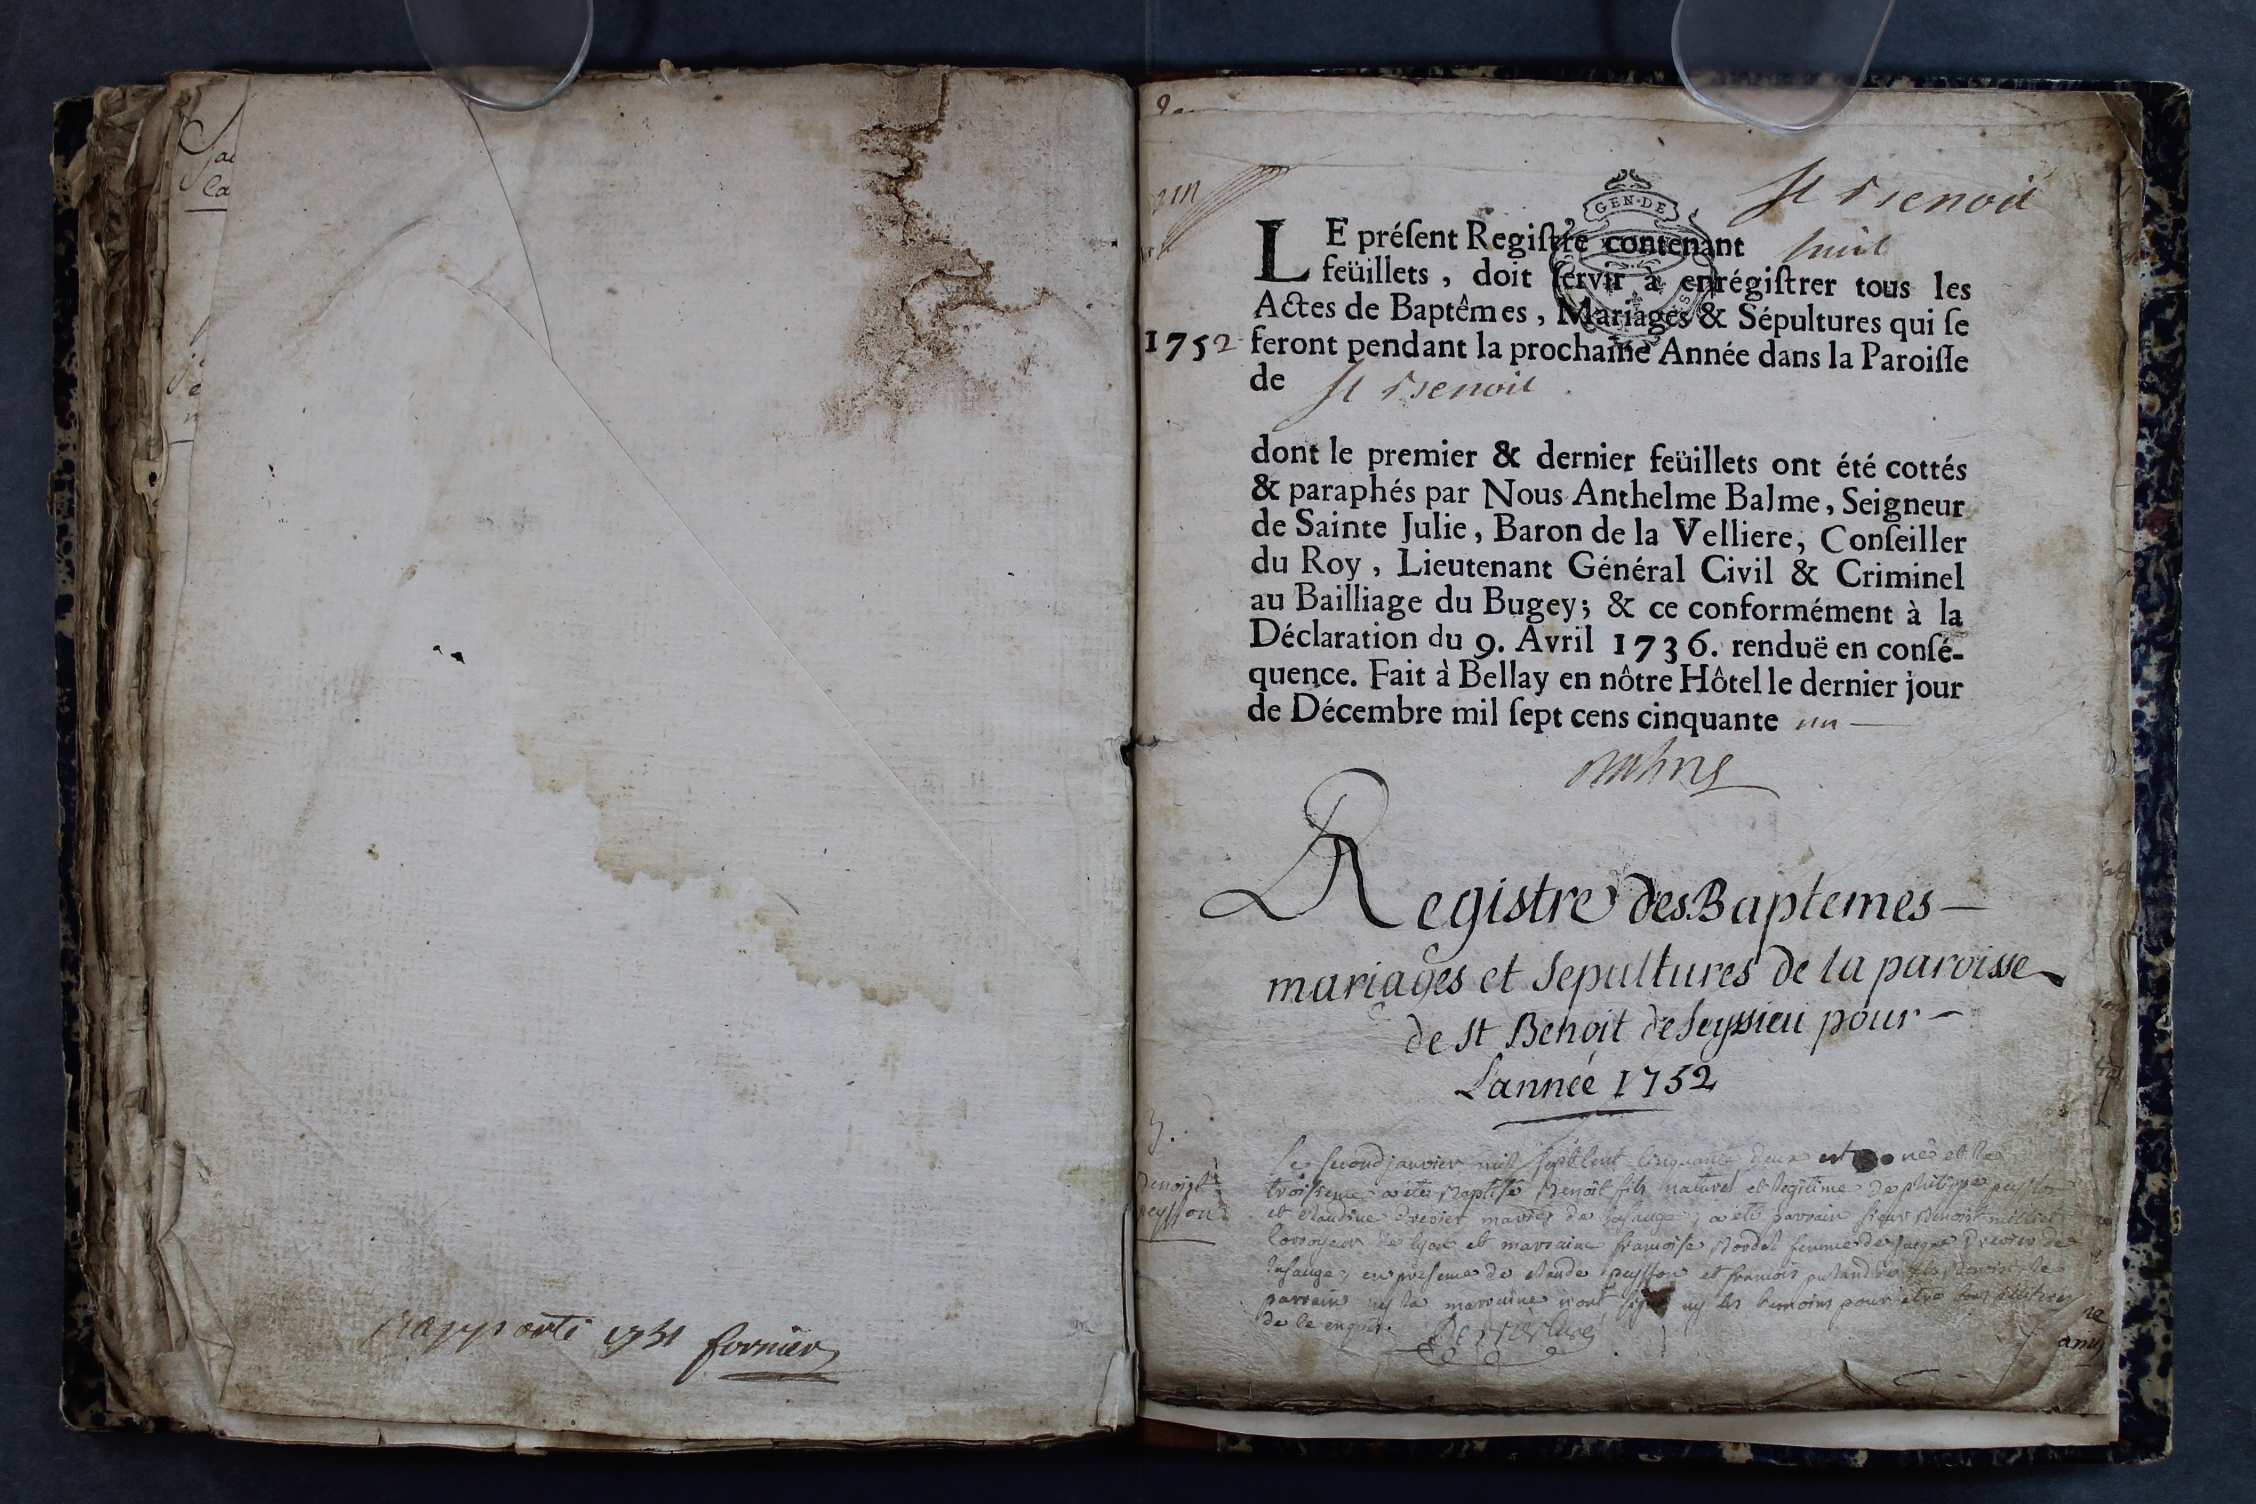 rapporté 1751 fornier
St Benoit
GEN·DE
LE préſent Regiſtre contenant huit
feüillets, doit ſervir à enrégiſtrer tous les
Actes de Baptêmes, Mariages & Sépultures qui ſe
1752 feront pendant la prochaine Année dans la Paroiſſe
de St Benoit.
dont le premier & dernier feüillets ont été cottés
& paraphés par Nous Anthelme Balme, Seigneur
de Sainte Julie, Baron de la Velliere, Conſeiller
du Roy, Lieutenant Général Civil & Criminel
au Bailliage du Bugey; & ce conformément à la
Déclaration du 9. Avril 1736. renduë en conſé-
quence. Fait à Bellay en nôtre Hôtel le dernier jour
de Décembre mil ſept cens cinquante un
Registre des Baptemes
mariages et Sepultures de la paroisse
de St Benoit de Seyssieu pour
L'année 1752
Benoist
peysson
Le second janvier mil sept cent cinquante deux est né et le
troisieme a été Baptisé Benoit fils naturel et legitime de philippe peysson
et Claudine Drevier mariés de ; a été parrain sieur Benoist
de lyon et marraine françoise femme de Drevier de
en presence de Claude peysson et françois
parrain ny la marraine n'ont ny les temoins pour etre tous illitéres
de ce enquis.